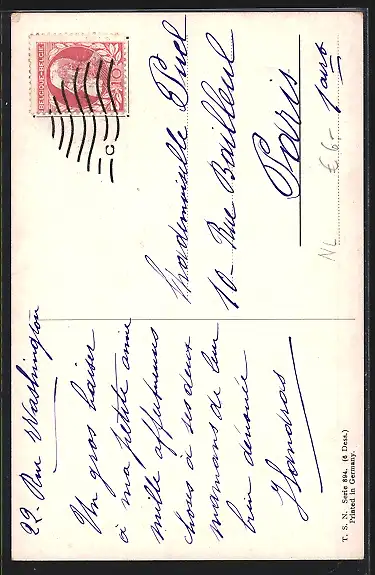 BELGIQUE-BELGIË
10
Mademoiselle Puel
10 Rue Bailleul
Paris
1 paris
£ 6.-
NL
22. Rue Washington
Un gros baiser
à ma petite amie
mille affectueuses
choses à ses deux
mamans de leur
bien dévouée
T. S. N. Serie 894. (6 Dess.)
Printed in Germany.